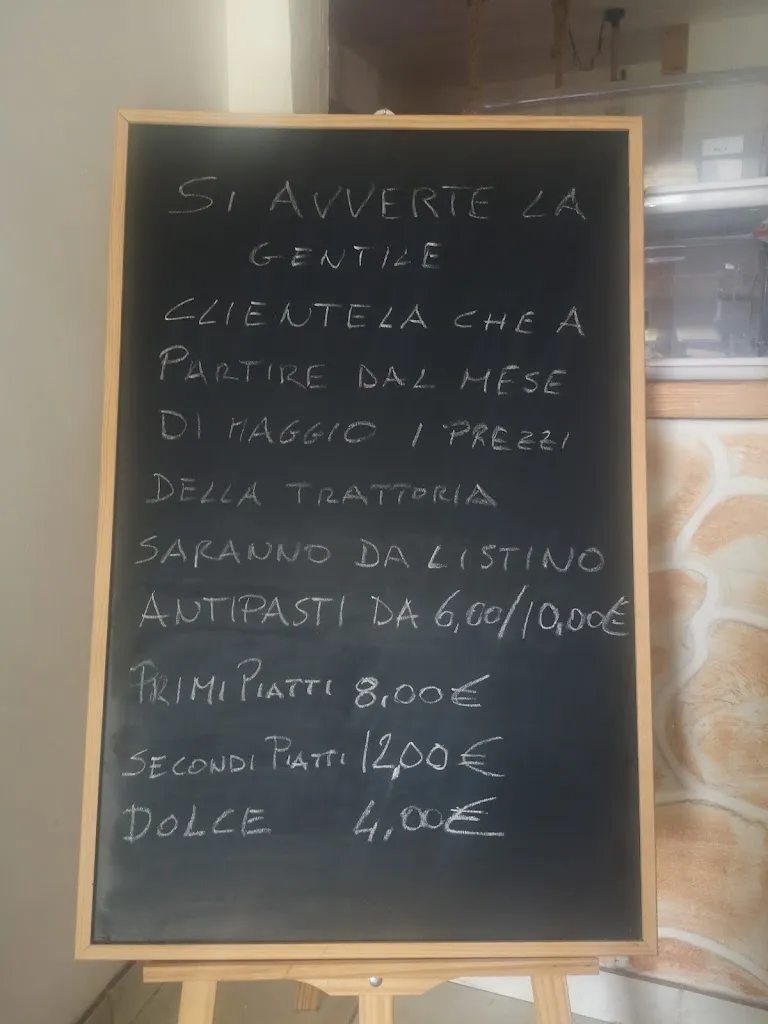 SI AVVERTE LA
GENTILE
CLIENTELA CHE A
PARTIRE DAL MESE
DI MAGGIO I PREZZI
DELLA TRATTORIA
SARANNO DA LISTINO
ANTIPASTI DA 6,00/10,00€
PRIMI PIATTI 8,00€
SECONDI PIATTI 12,00€
DOLCE 4,00€